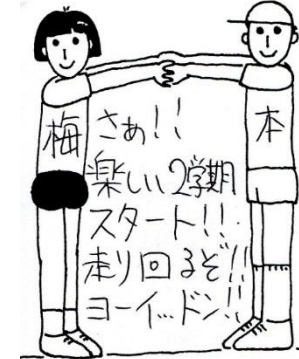 梅
本
さぁ!!
楽しい2学期
スタート!!
走り回るぞ!!
ヨーイッドン!!